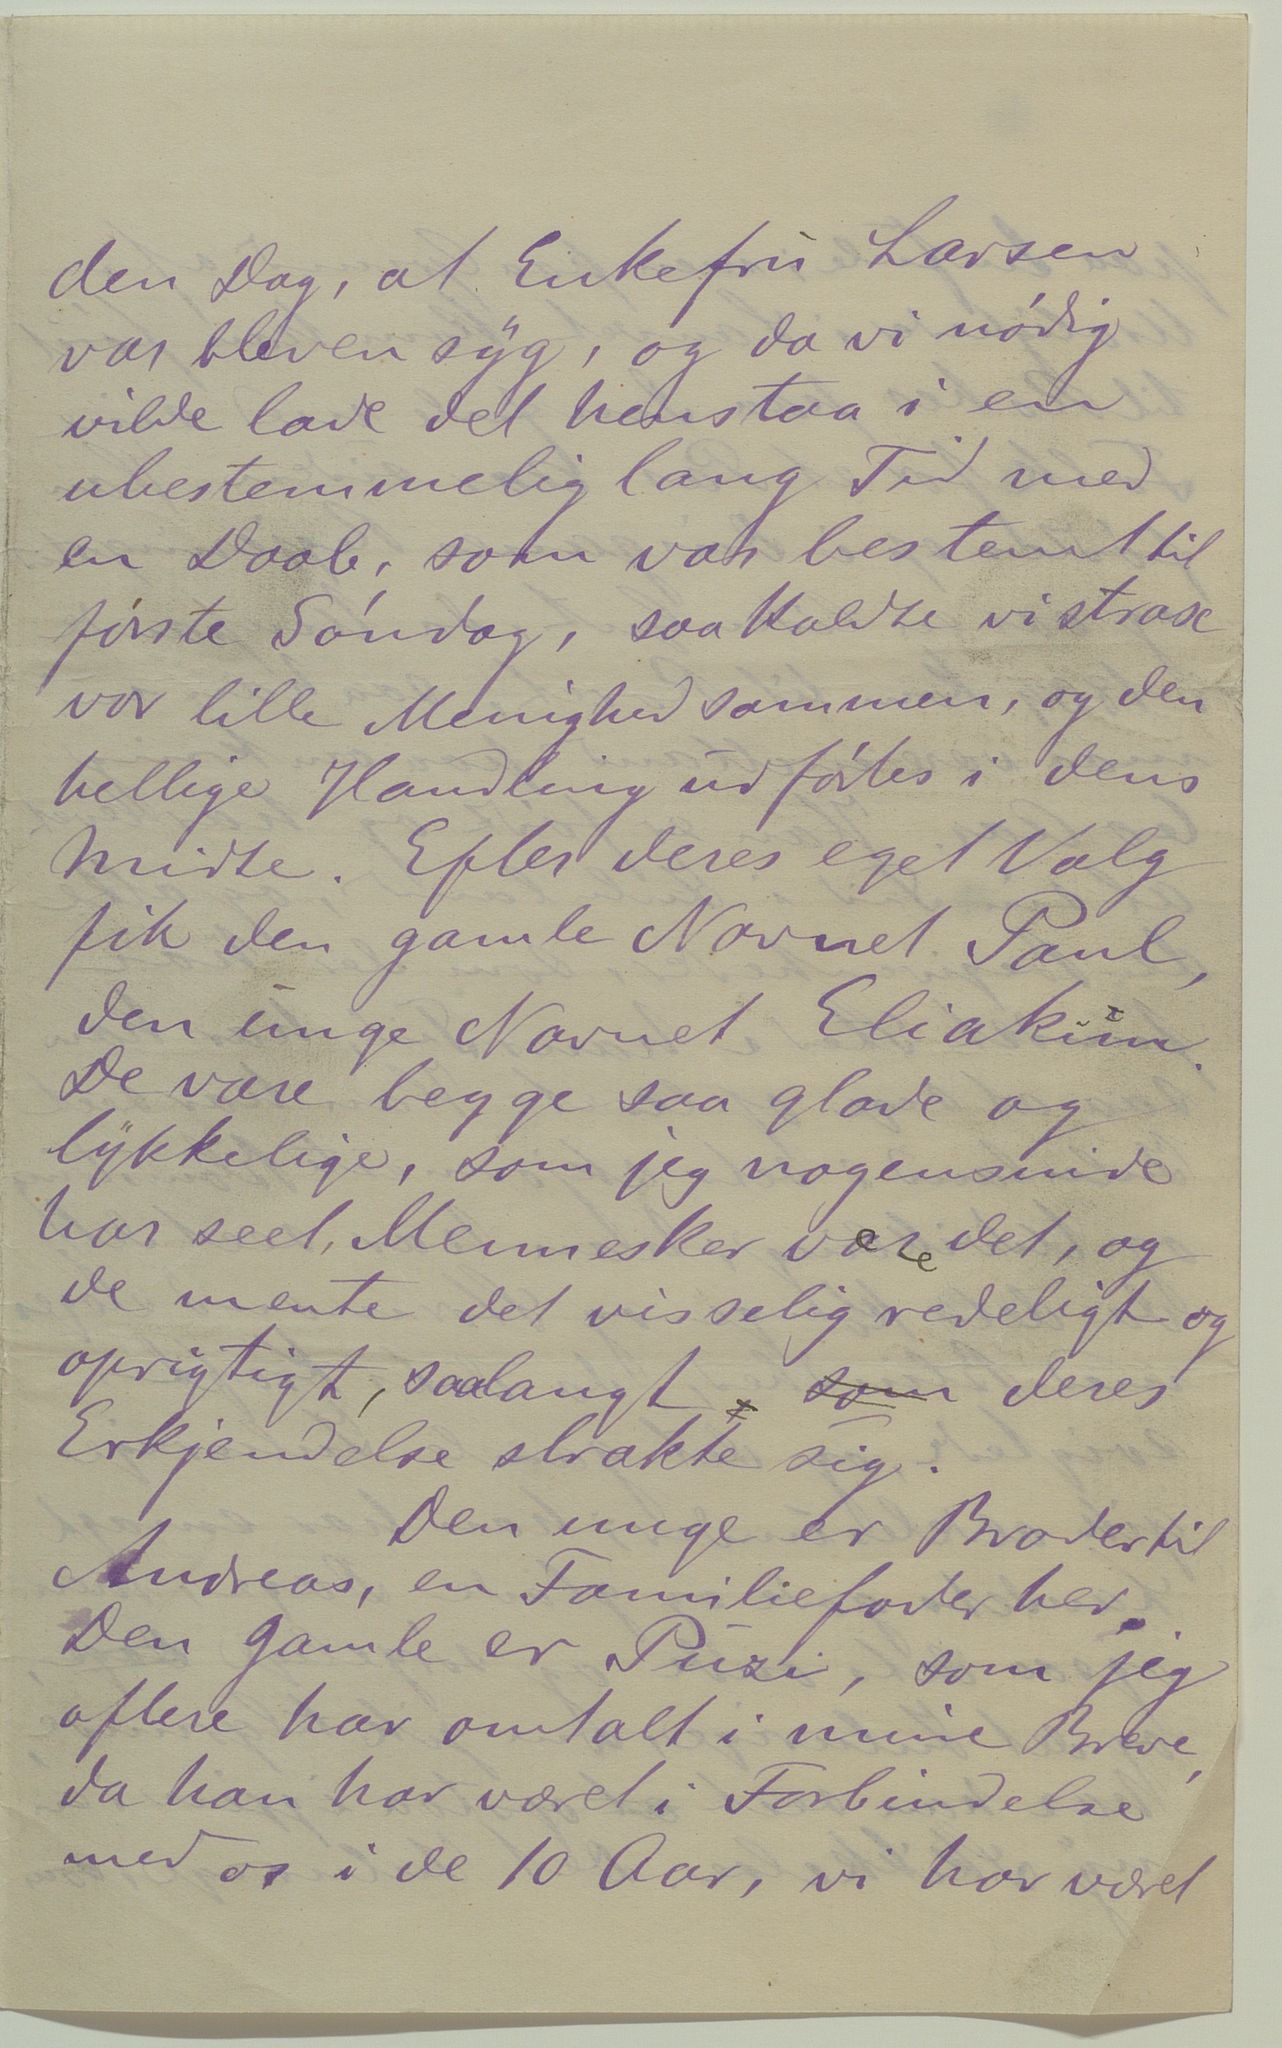 den Dag, at Enkefru Larsen
var bleven syg, og da vi nødig
vilde lade det henstaa i en
ubestemmelig lang Tid med
en Daab, som var bestemt til
første Søndag, saa kaldte vi strax
vor lille Menighed sammen, og den
hellige Handling udførtes i dens
Midte. Efter deres eget Valg
fik den gamle Navnet Paul,
den unge Navnet Eliakim.
De vare begge saa glade og
lykkelige, som jeg nogensinde
har seet Mennesker være det, og
de mente det visselig redeligt og
oprigtigt, saalangt som deres
Erkjendelse strakte sig.
Den unge er Broder til
Andreas, en Familiefader her.
Den gamle er Puzi, som jeg
oftere har omtalt i mine Breve,
da han har været i Forbindelse
med os i de 10 Aar, vi har været